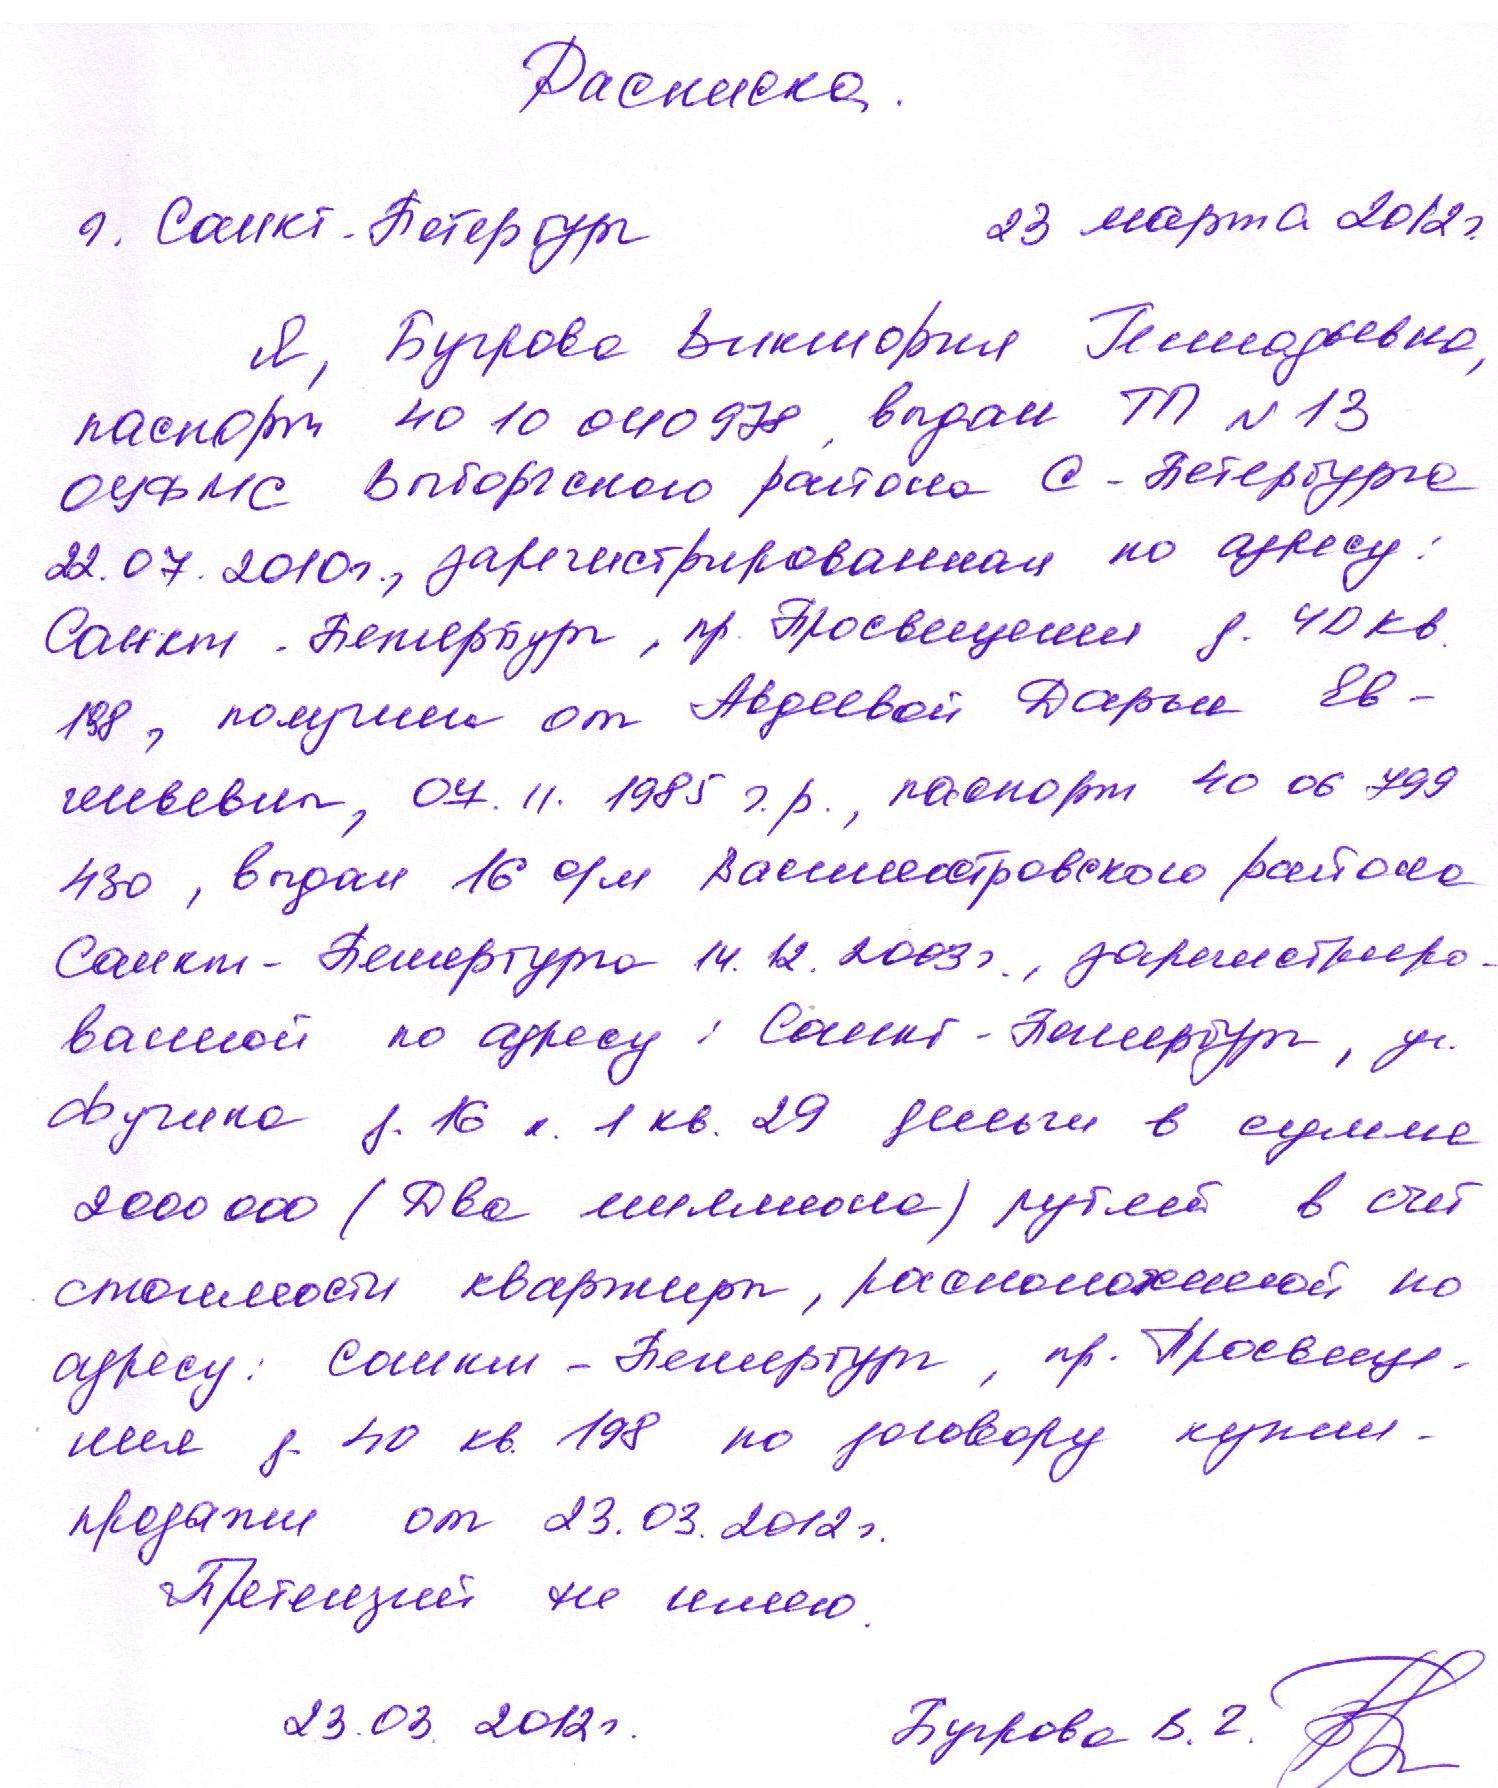 Расписка.
г. Санкт-Петербург 23 марта 2012г.
Я, Бугрова Виктория Геннадьевна,
паспорт 40 10 040978, выдан ТП N 13
ОУФМС Выборгского района С-Петербурга
22.07.2010г., зарегистрированная по адресу:
Санкт-Петербург, пр. Просвещения д. 40 кв.
198, получила от Авдеевой Дарьи Ев-
геньевны, 07.11.1985 г.р., паспорт 40 06 799
430, выдан 16 о/м Василеостровского района
Санкт-Петербурга 14.12.2003г., зарегистриро-
ванной по адресу: Санкт-Петербург, ул.
Фучика д. 16 к. 1 кв. 29 деньги в сумме
2000 000 (Два миллиона) рублей в счет
стоимости квартиры, расположенной по
адресу: Санкт-Петербург, пр. Просвеще-
ния д. 40 кв. 198 по договору купли-
продажи от 23.03.2012г.
Претензий не имею.
23.03.2012г. Бугрова В. Г.